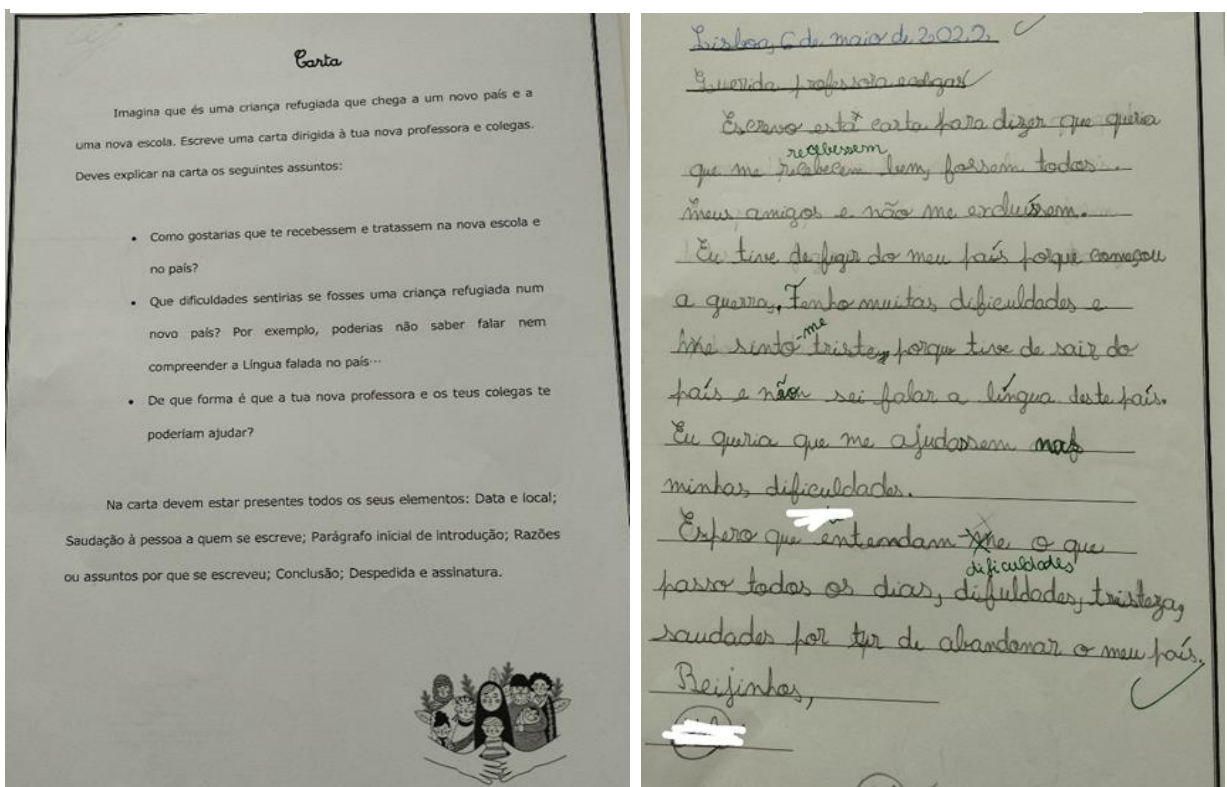 Carta
Imagina que és uma criança refugiada que chega a um novo país e a
uma nova escola. Escreve uma carta dirigida à tua nova professora e colegas.
Deves explicar na carta os seguintes assuntos:
• Como gostarias que te recebessem e tratassem na nova escola e
no país?
• Que dificuldades sentirias se fosses uma criança refugiada num
novo país? Por exemplo, poderias não saber falar nem
compreender a Língua falada no país…
• De que forma é que a tua nova professora e os teus colegas te
poderiam ajudar?
Na carta devem estar presentes todos os seus elementos: Data e local;
Saudação à pessoa a quem se escreve; Parágrafo inicial de introdução; Razões
ou assuntos por que se escreveu; Conclusão; Despedida e assinatura.
Lisboa, 6 de maio de 2022
Querida professora e colegas
Escrevo está carta para dizer que queria
recebessem
que me recebecem bem, fossem todos
meus amigos e não me excluíssem.
Eu tive de fugir do meu país porque começou
a guerra. Tenho muitas dificuldades e
-me
me sinto triste, porque tive de sair do
país e não sei falar a língua deste país.
Eu queria que me ajudassem nas
minhas dificuldades.
Espero que entendam-me o que
dificuldades
passo todos os dias, difuldades, tristeza,
saudades por ter de abandonar o meu país.
Beijinhos,